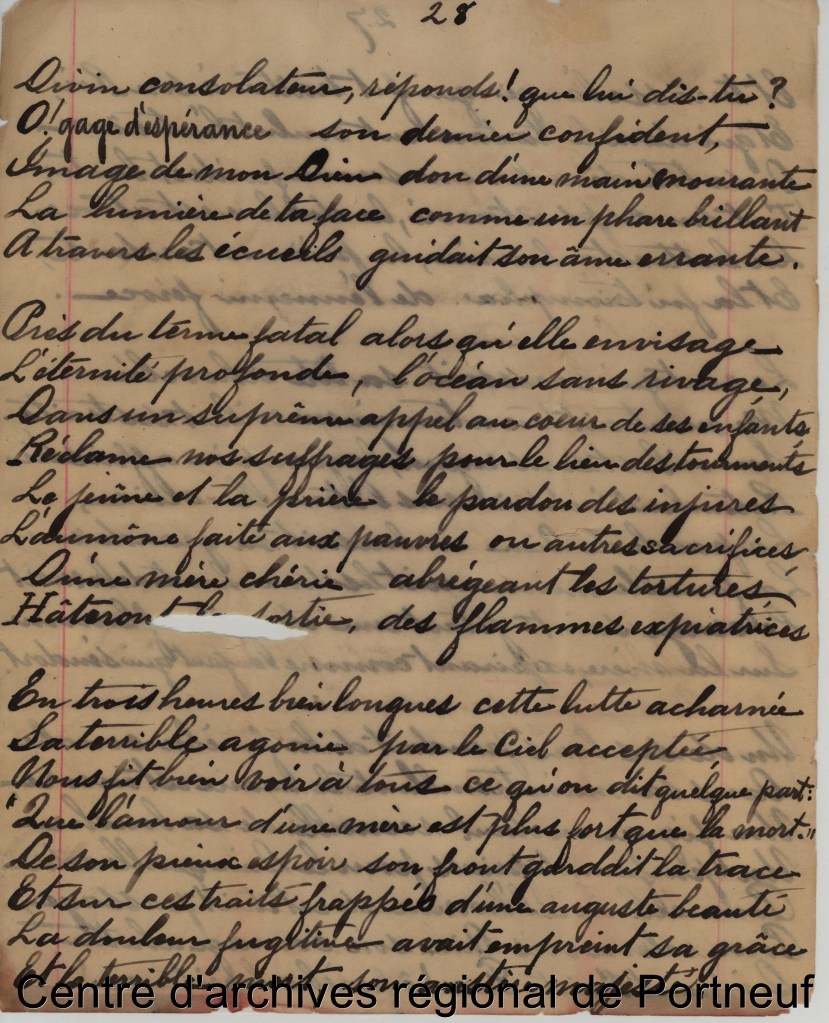 28
Divin consolateur, réponds! que lui dis-tu?
O! gage d'espérance son dernier confident,
Image de mon Dieu don d'une main mourante
La lumière de ta face comme un phare brillant
A travers les écueils guidait son âme errante.
Près du terme fatal alors qu'elle envisage
L'éternité profonde, l'océan sans rivage,
Dans un suprême appel au coeur de ses enfants
Réclame nos suffrages pour le lieu des tourments
Le jeûne et la prière le pardon des injures
L'aumône faite aux pauvres ou autres sacrifices,
D'une mère chérie abrégeant les tortures,
Hâteront la sortie, des flammes expiatrices
En trois heures bien longues cette lutte acharnée
Sa terrible agonie par le Ciel acceptée,
Nous fit bien voir à tous ce qu'on dit quelque part:
"Que l'amour d'une mère est plus fort que la mort."
De son pieux espoir son front garddit la trace
Et sur ces traits frappés d'une auguste beauté
La douleur fugitive avait empreint sa grâce
Et la terrible mort son austère majesté
Centre d'archives régional de Portneuf